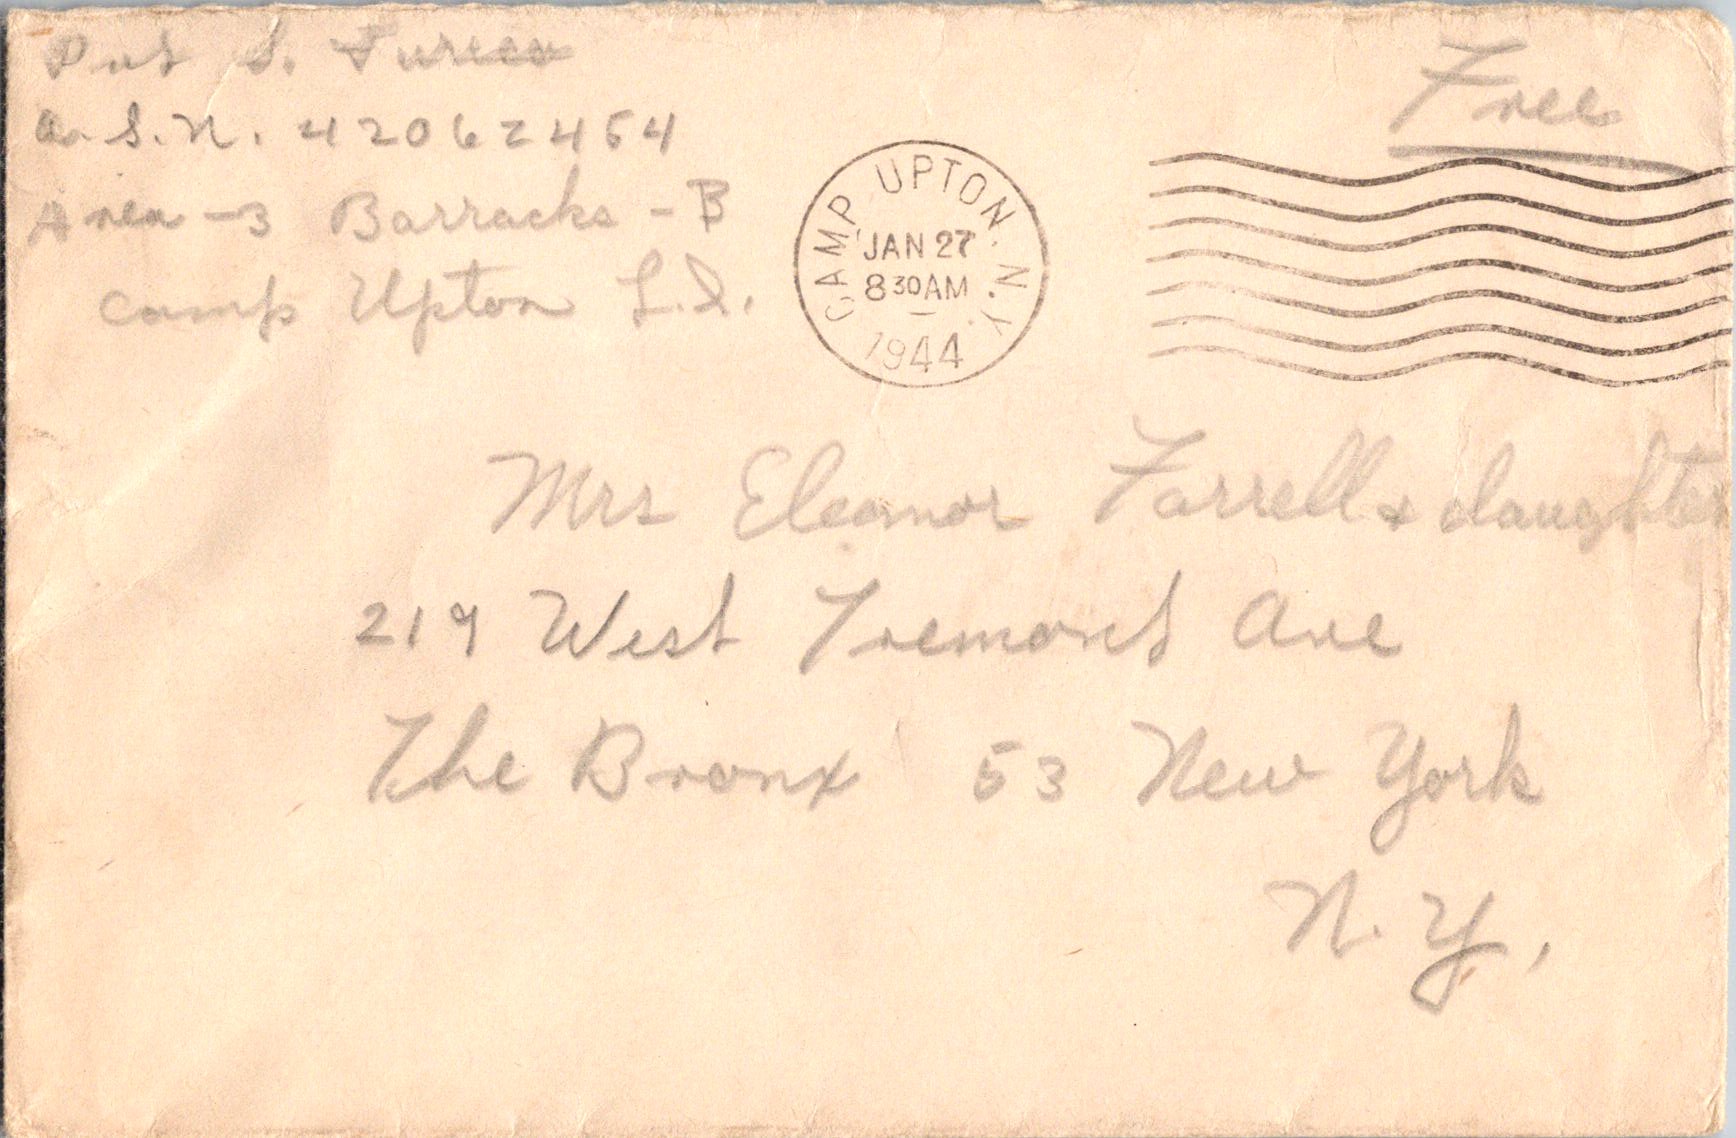 Pvt S. Turico
A.S.N. 42062454
Area - 3 Barracks - B
Camp Upton L.I.
Free
CAMP UPTON. N.Y.
JAN 27
8 30 AM
1944
Mrs Eleanor Farrell & daughter
219 West Tremont Ave
The Bronx 53 New York
N.Y.